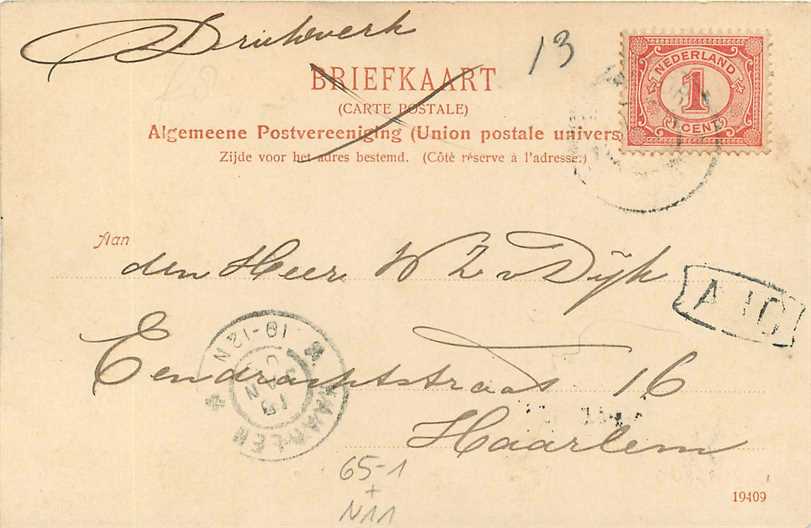 Drukwerk
13
BRIEFKAART
(CARTE POSTALE)
Algemeene Postvereeniging (Union postale univers
Zijde voor het adres bestemd. (Côté réserve à l'adresse.)
NEDERLAND
1
CENT
Aan
den Heer W Z v Dijk
Eendrachtstraat 16
Haarlem
HAARLEM
10-12 N
JAN
65-1
+
N11
19409